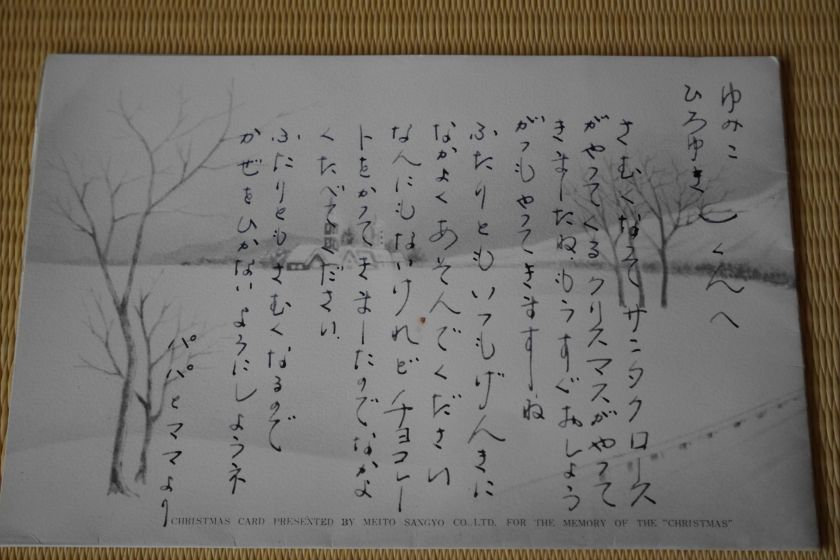 ゆみこ
ひろゆき くんへ
さむくなってサンタクロース
がやってくるクリスマスがやって
きましたね.もうすぐおしよう
がつもやってきますね
ふたりともいつもげんきに
なかよくあそんでください
なんにもないけれどチョコレー
トをかってきましたのでなかよ
くたべてください.
ふたりともさむくなるので
かぜをひかないようにしようネ
パパとママより
CHRISTMAS CARD PRESENTED BY MEITO SANGYO CO.,LTD. FOR THE MEMORY OF THE "CHRISTMAS"